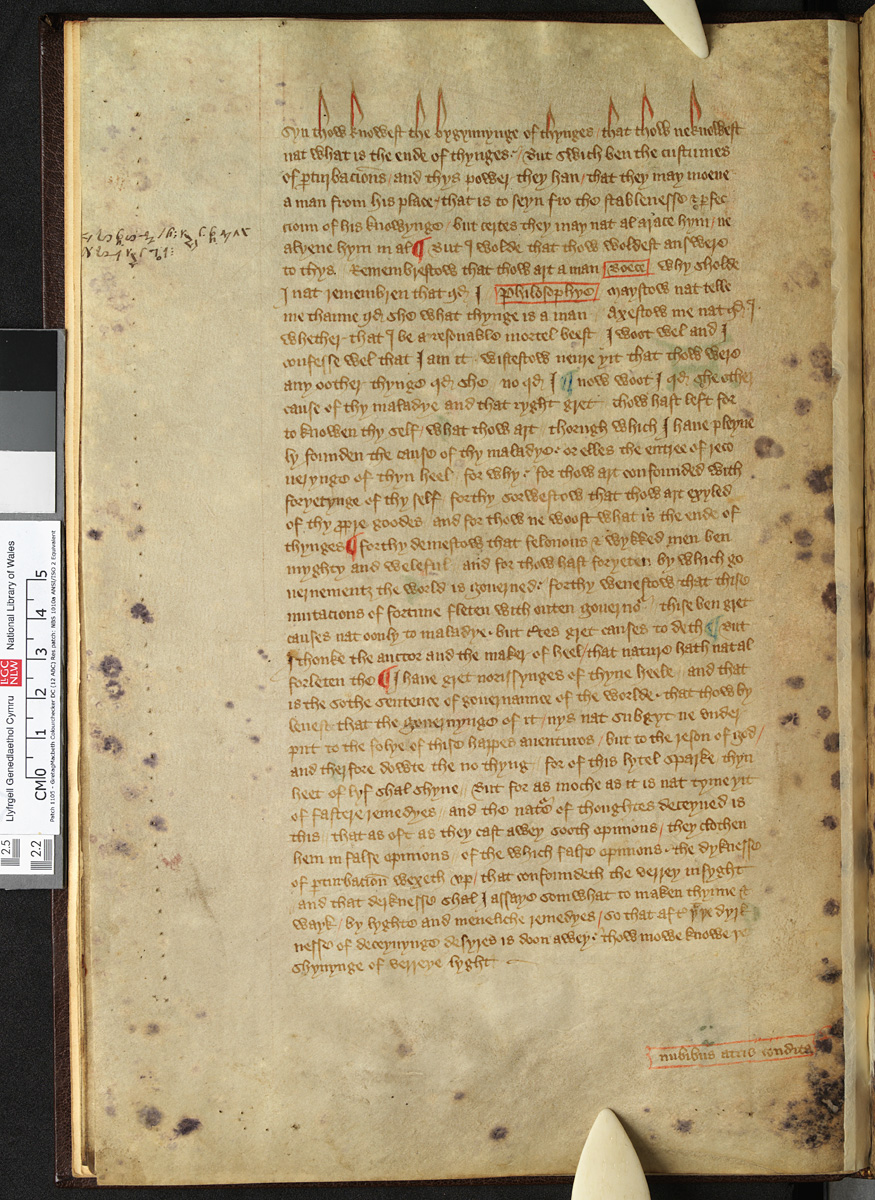 Syn thow knowest the bygynnynge of thynges / that thow ne knowest
nat what is the ende of thynges // But swich ben the custumes
of p̲turbacions / and thys power they han / that they may moeue
a man from his place / that is to seyn fro the stablenesse & p̲fec
cioun of his knowynge / but certes they may nat al arace hym / ne
alyene hym in al ¶ But I wolde that thow woldest answere
to thys Remembrestow that thow art a man Boece why sholde
I nat remembren that qd I Philosophye Maystow nat telle
me thanne qd she what thynge is a man Axestow me nat qd I
whether that I be a resonable mortel beest I woot wel and I
confesse wel that I am it wistestow neuere yit that thow were
any oother thynge qd she no qd I ¶ now woot I qd she other
cause of thy maladye and that ryght gret thow hast left for
to knowen thy self / what thow art thorugh which I haue pleyne
ly founden the cause of thy maladye or elles the entree of reco
uerynge of thyn heel for why for thow art confounded with
foryetynge of thy self forthy sorwestow that thow art exyled
of thy p̲pre goodes and for thow ne woost what is the ende of
thynges ¶ forthy demestow that felonous & wykked men ben
myghty and weleful and for thow hast foryeten by which go
uernementz the world is gouerned forthy wenestow that thise
mutacions of fortune fleten with outen gouernor thise ben gret
causes nat oonly to maladye but c̲tes gret causes to deth ¶ But
I thonke the auctor and the maker of heel / that nature hath nat al
forleten the ¶ I haue gret norissynges of thyne heele and that
is the sothe sentence of gouernannce of the worlde that thow by
leuest that the gouernynge of it / nys nat subgyt ne vnder
put to the folye of thise happes auentures / but to the reson of god /
and therfore dowte the no thyng for of this lytel sparke thyn
heet of lyf shal shyne / But for as moche as it is nat tyme yit
of fastere remedyes / and the nature of thoughtes deceyued is
this / that as ofte as they cast awey sooth opinions / they clothen
hem in false opinions / of the which false opinions the dyknesse
of p̲turbacion wexeth vp / that confoundeth the verrey insyght
and that derknesse shal I assaye somwhat to maken thynne &
wayk / by lyghte and meneliche remedyes / so that aft̲ þt þe dyrk
nesse of deceyuynge desyres is doon awey thow mowe knowe þe
shynynge of verreye lyght
nubibus atris condita
Llyfrgell Genedlaethol Cymru National Library of Wales
LlGC
NLW
CM 0 1 2 3 4 5
2.5
2.2